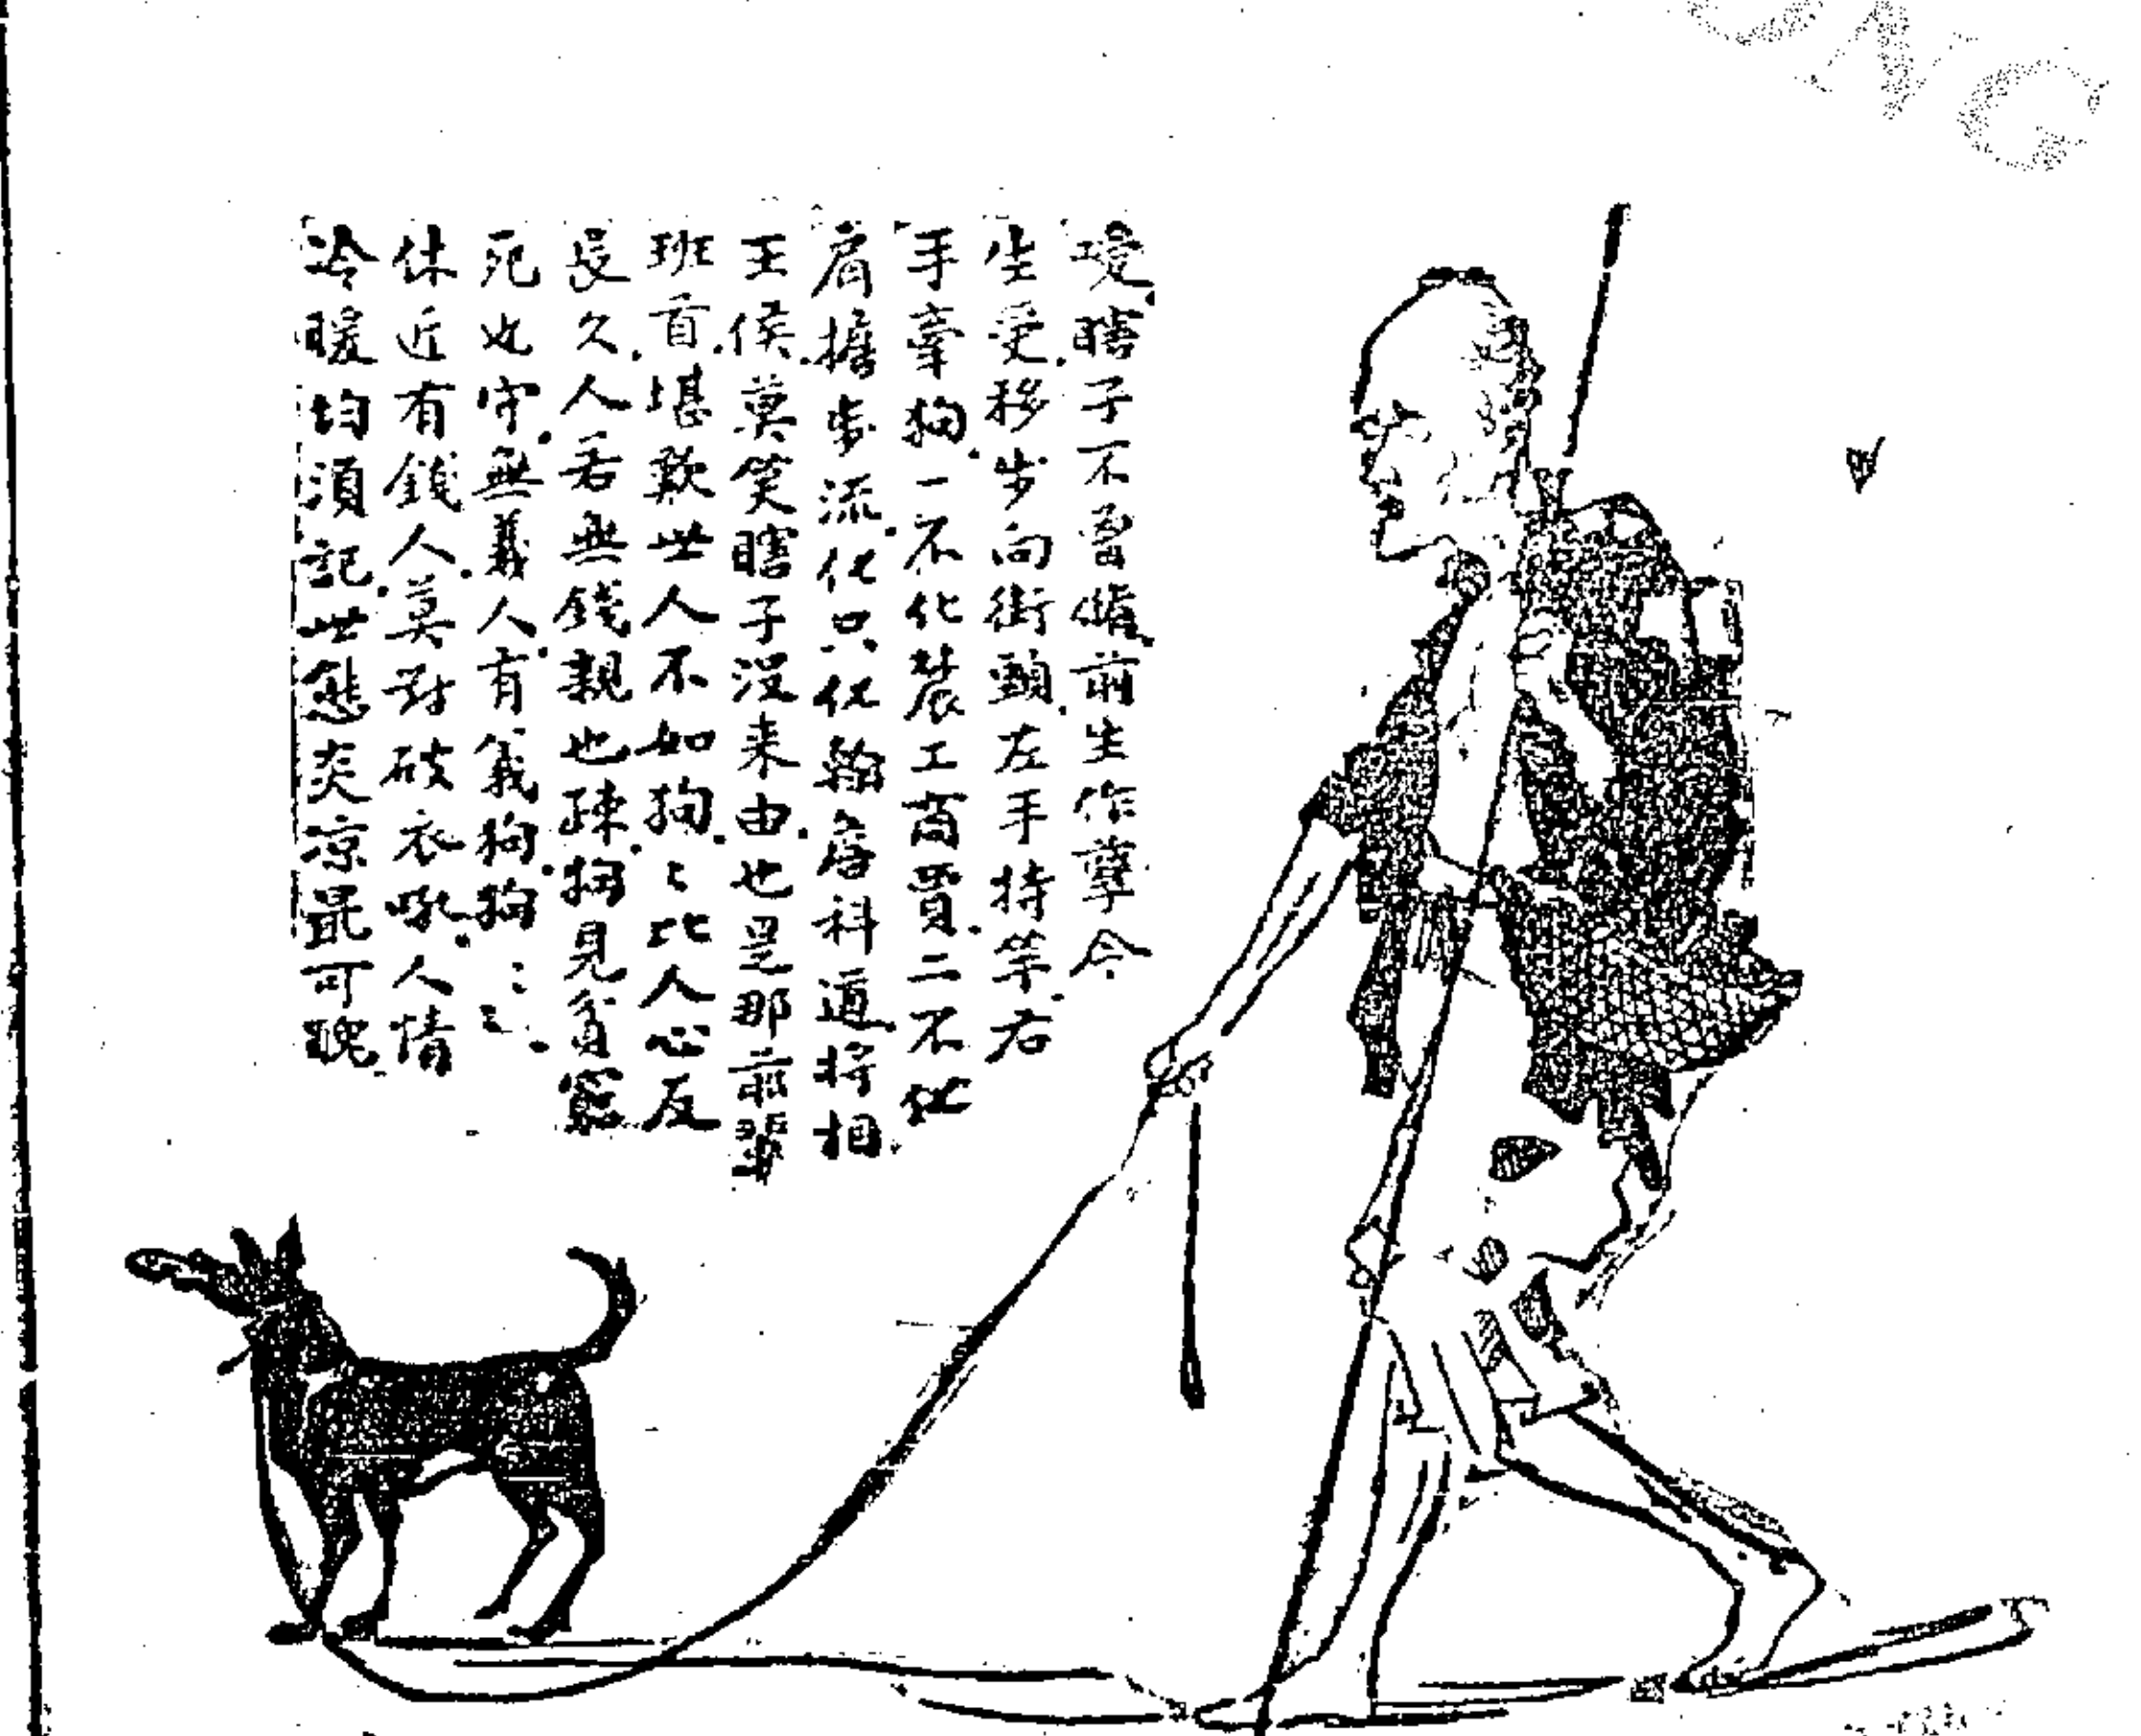 瞎子不曾瞎前生作孽今
生受移步向街頭左手持竿右
手牽狗一不化農工商賈二不化
肩擔步流化只化翰詹科道將相
王侯莫笑瞎子沒来由也是那前輩
班首堪歎世人不如狗〻比人心反
長久人若無錢親也疎狗見貧窮
死也守無義人有義狗狗〻〻
休近有錢人莫對破衣吼人情
冷暖均須記世態炎凉最可醜